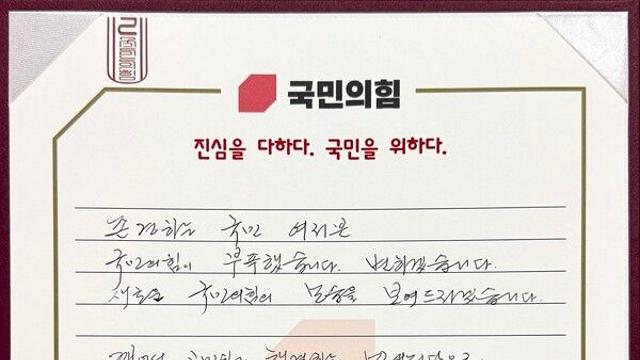 국민의힘
진심을 다하다. 국민을 위하다.
존경하는 국민 여러분
국민의힘이 부족했습니다. 변하겠습니다.
새로운 국민의힘의 모습을 보여드리겠습니다.